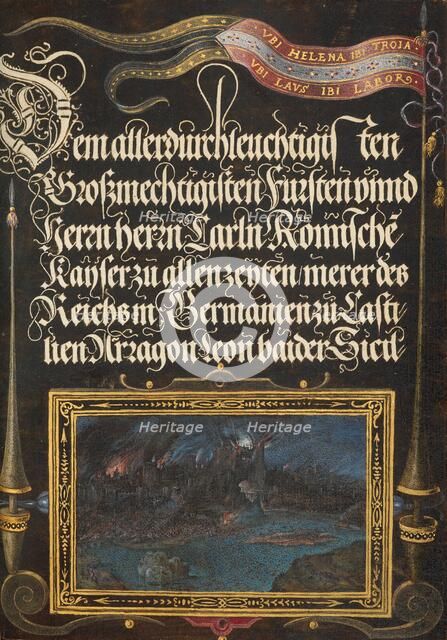 VBI HELENA IBI TROIA
VBI LAVS IBI LABOR.
Dem allerdurchleuchtigisten
Großmechtigisten Fursten vnnd
Herrn herrn Carln Römische
Kayser zu allen zeyten merer des
Reichs in Germanien zu Casti
lien Arragon Leon baider Sicil
Heritage
Heritage
Heritage
Heritage
Heritage
Heritage